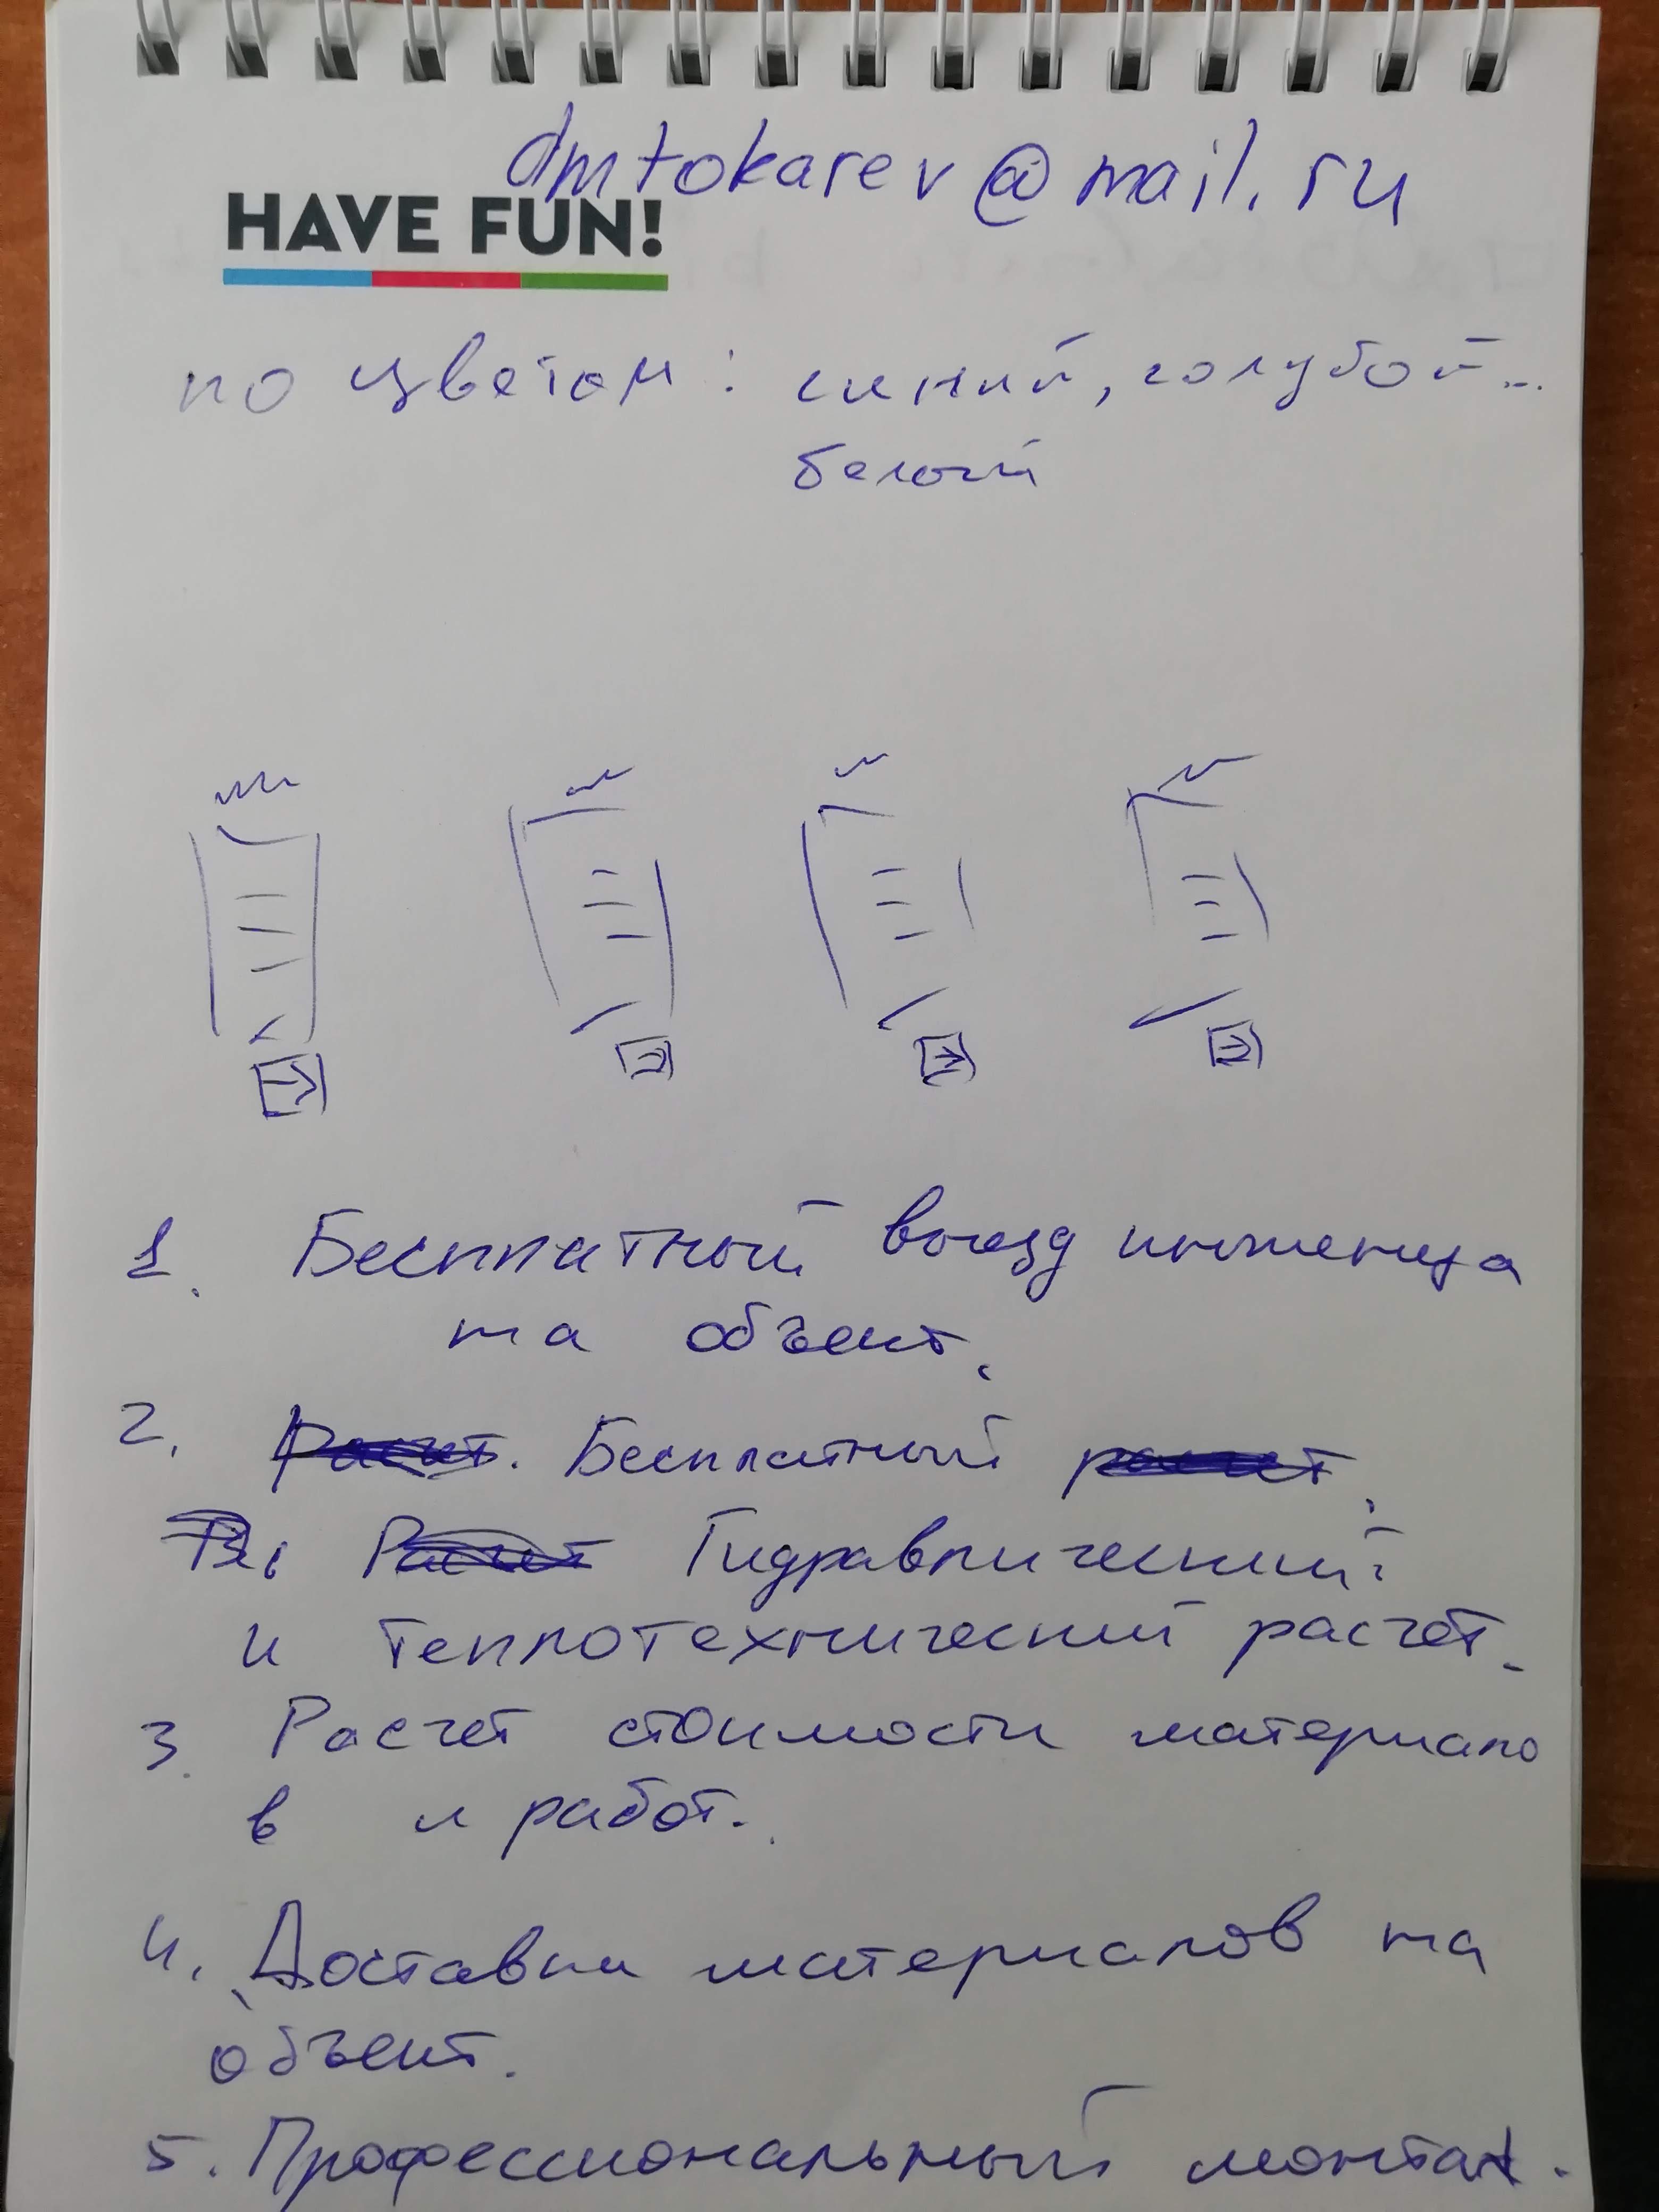 dmtokarev@mail.ru
HAVE FUN!
по цветам: синий, голубой...
белый
1. Бесплатный выезд инженера
на объект.
2. Расчет. Бесплатный расчет.
Расчет Гидравлический
и теплотехнический расчет.
3. Расчет стоимости материало
в и работ.
4. Доставка материалов на
объект.
5. Профессиональный монтаж.